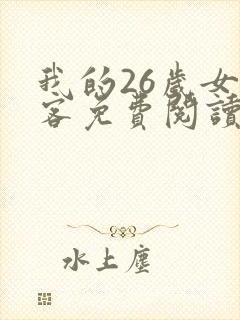 我的26歲女
客免費閱讀
水上塵